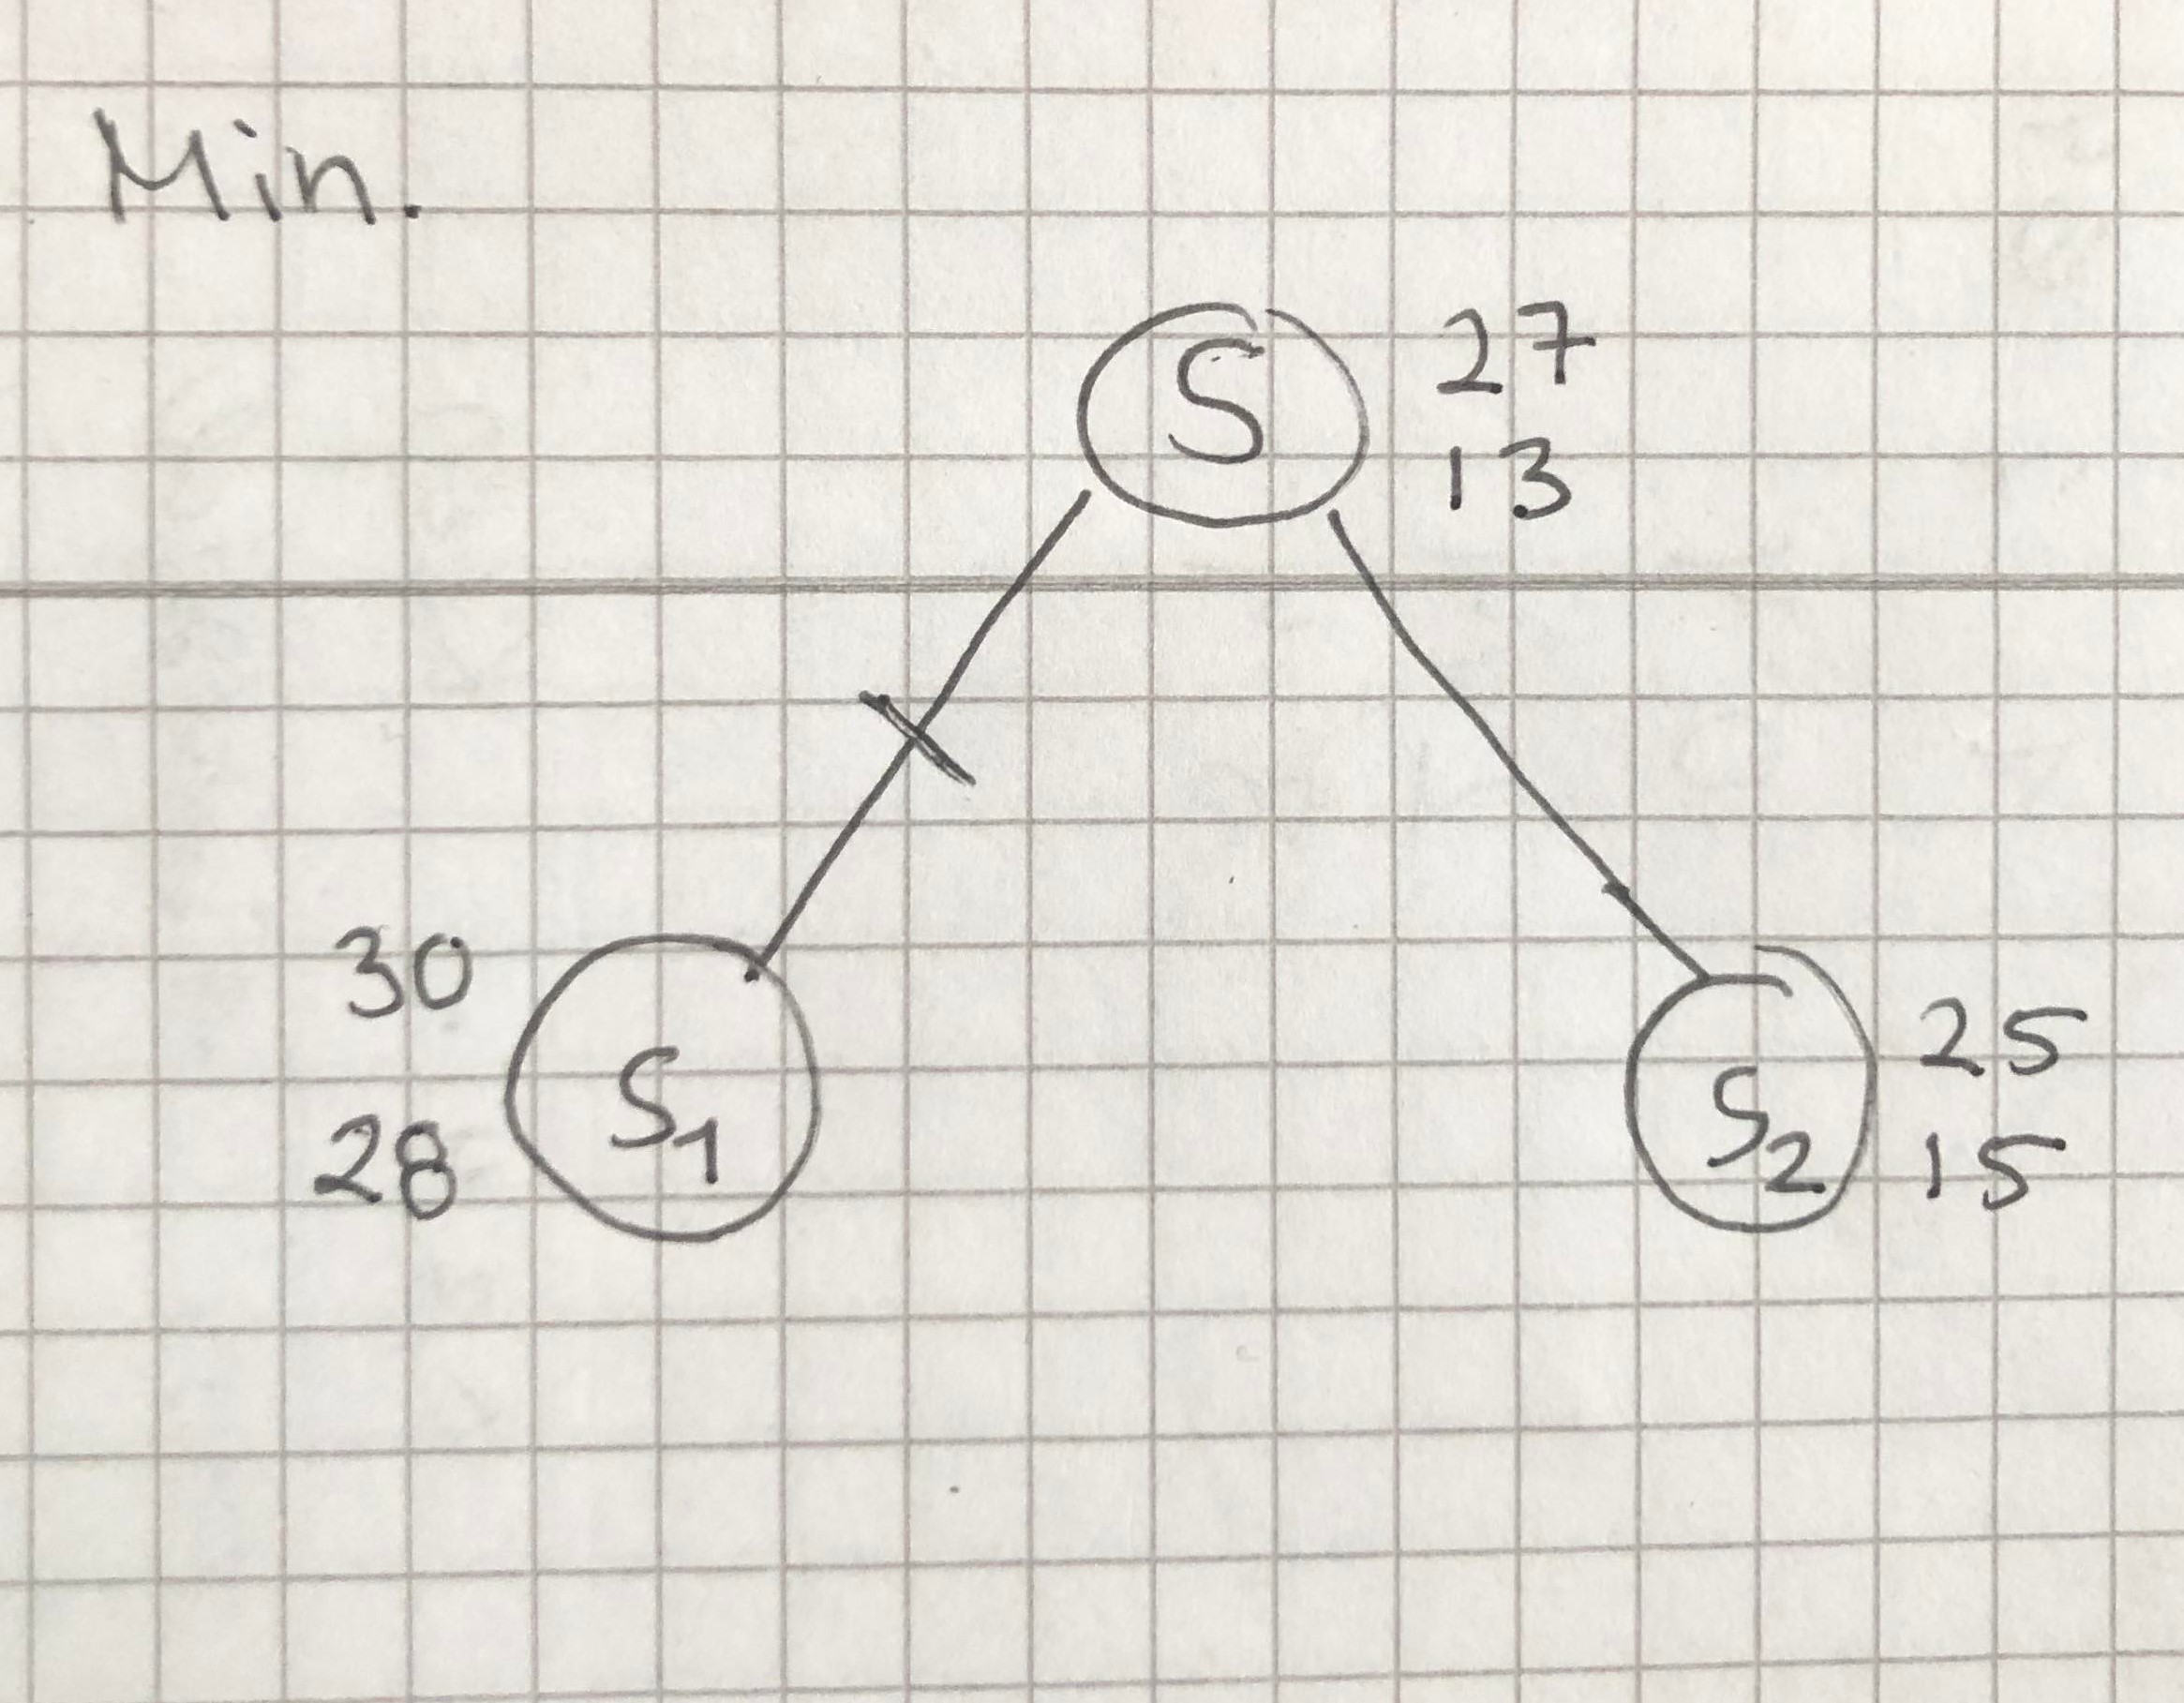 Min.
S 27
13
30
28
S1
S2
25
15